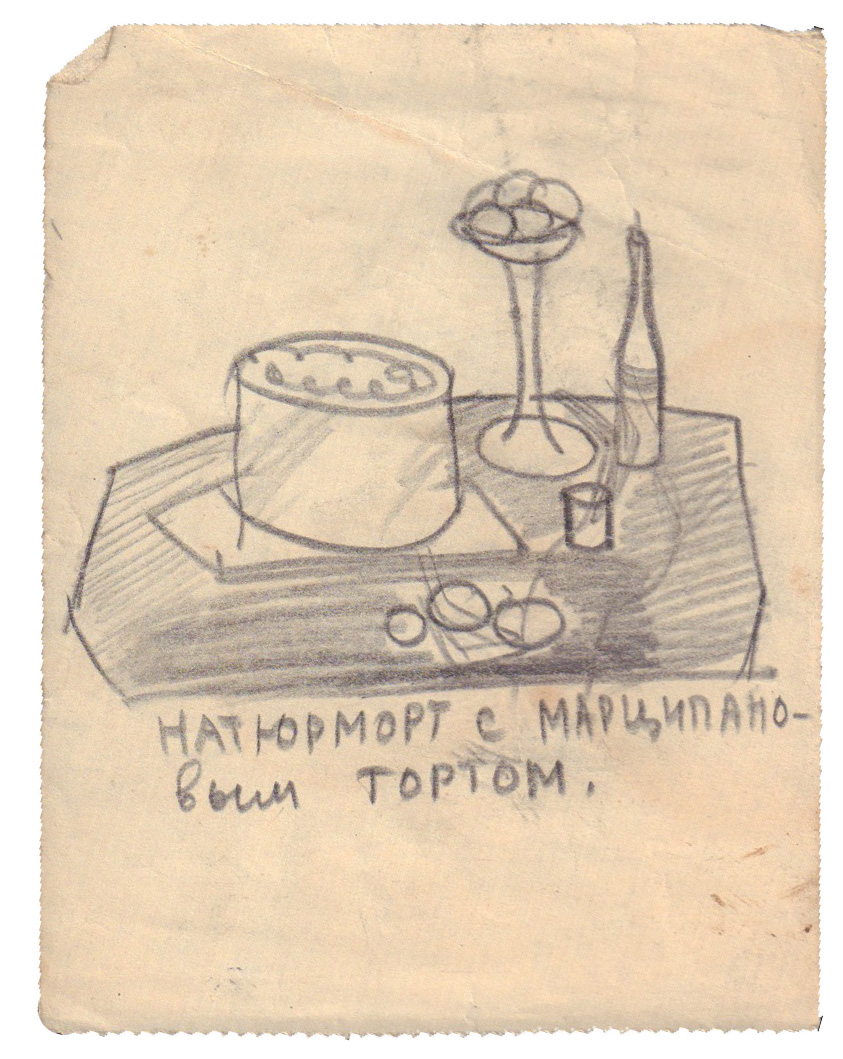 НАТЮРМОРТ С МАРЦИПАНО-
вым ТОРТОМ.